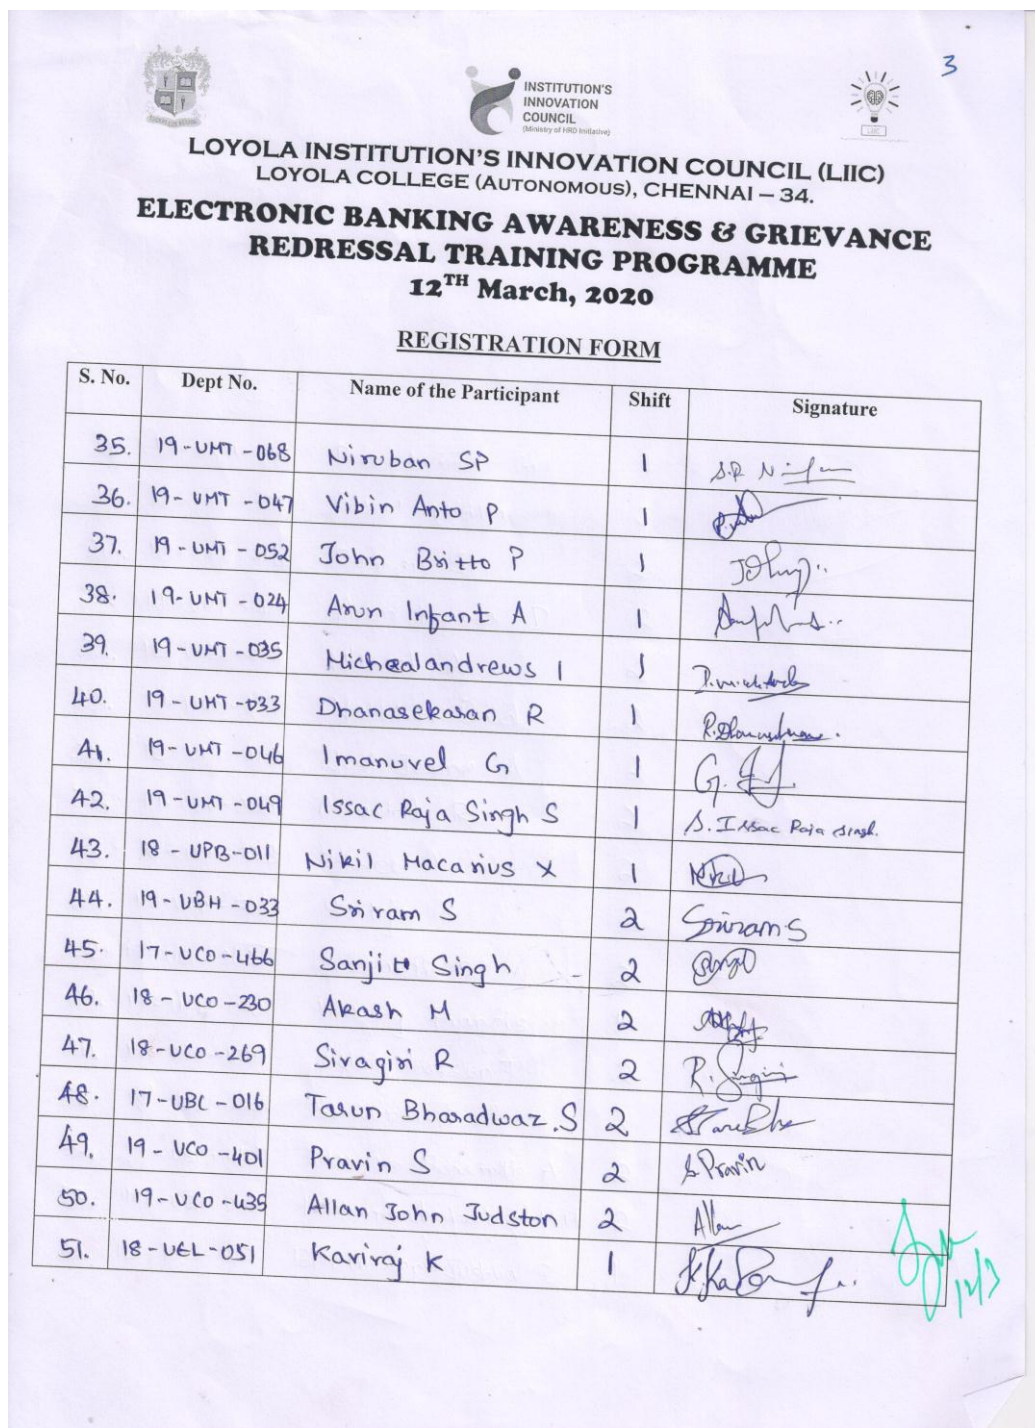 3
INSTITUTION'S
INNOVATION
COUNCIL
(Ministry of HRD Initiative)
LIIC
LOYOLA INSTITUTION'S INNOVATION COUNCIL (LIIC)
LOYOLA COLLEGE (AUTONOMOUS), CHENNAI – 34.
ELECTRONIC BANKING AWARENESS & GRIEVANCE
REDRESSAL TRAINING PROGRAMME
12TH March, 2020
REGISTRATION FORM
S. No. Dept No. Name of the Participant Shift Signature
35. 19-UMT-068 Niruban SP 1
36. 19-UMT-047 Vibin Anto P 1
37. 19-UMT-052 John Britto P 1
38. 19-UMT-024 Arun Infant A 1
39. 19-UMT-035 Michealandrews I 1
40. 19-UMT-033 Dhanasekaran R 1 R.Dhanasekaran.
41. 19-UMT-046 Imanuvel G 1 G.
42. 19-UMT-049 Issac Raja Singh S 1 S. Issac Raja Singh.
43. 18-UPB-011 Nikil Macarius X 1
44. 19-UBH-033 Sriram S 2 Sriram.S
45. 17-UCO-466 Sanjitt Singh 2
46. 18-UCO-230 Akash M 2
47. 18-UCO-269 Sivagiri R 2
48. 17-UBC-016 Tarun Bharadwaz.S 2
49. 19-UCO-401 Pravin S 2 S.Pravin
50. 19-UCO-435 Allan John Judston 2 Allan
51. 18-UEL-051 Kaviraj K 1
12/3